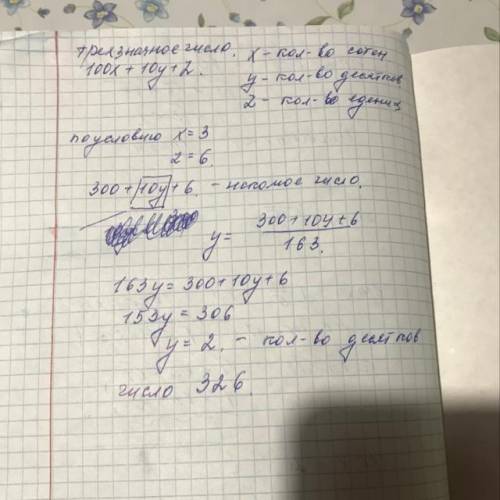 трехзначное число.
100x + 10y + z.
x - кол-во сотен
y - кол-во десятков
z - кол-во едениц
по условию x = 3
z = 6.
300 + 10y + 6. - искомое число.
y = 300 + 10y + 6 / 163.
163y = 300 + 10y + 6
153y = 306
y = 2. - кол-во десятков
число 326.